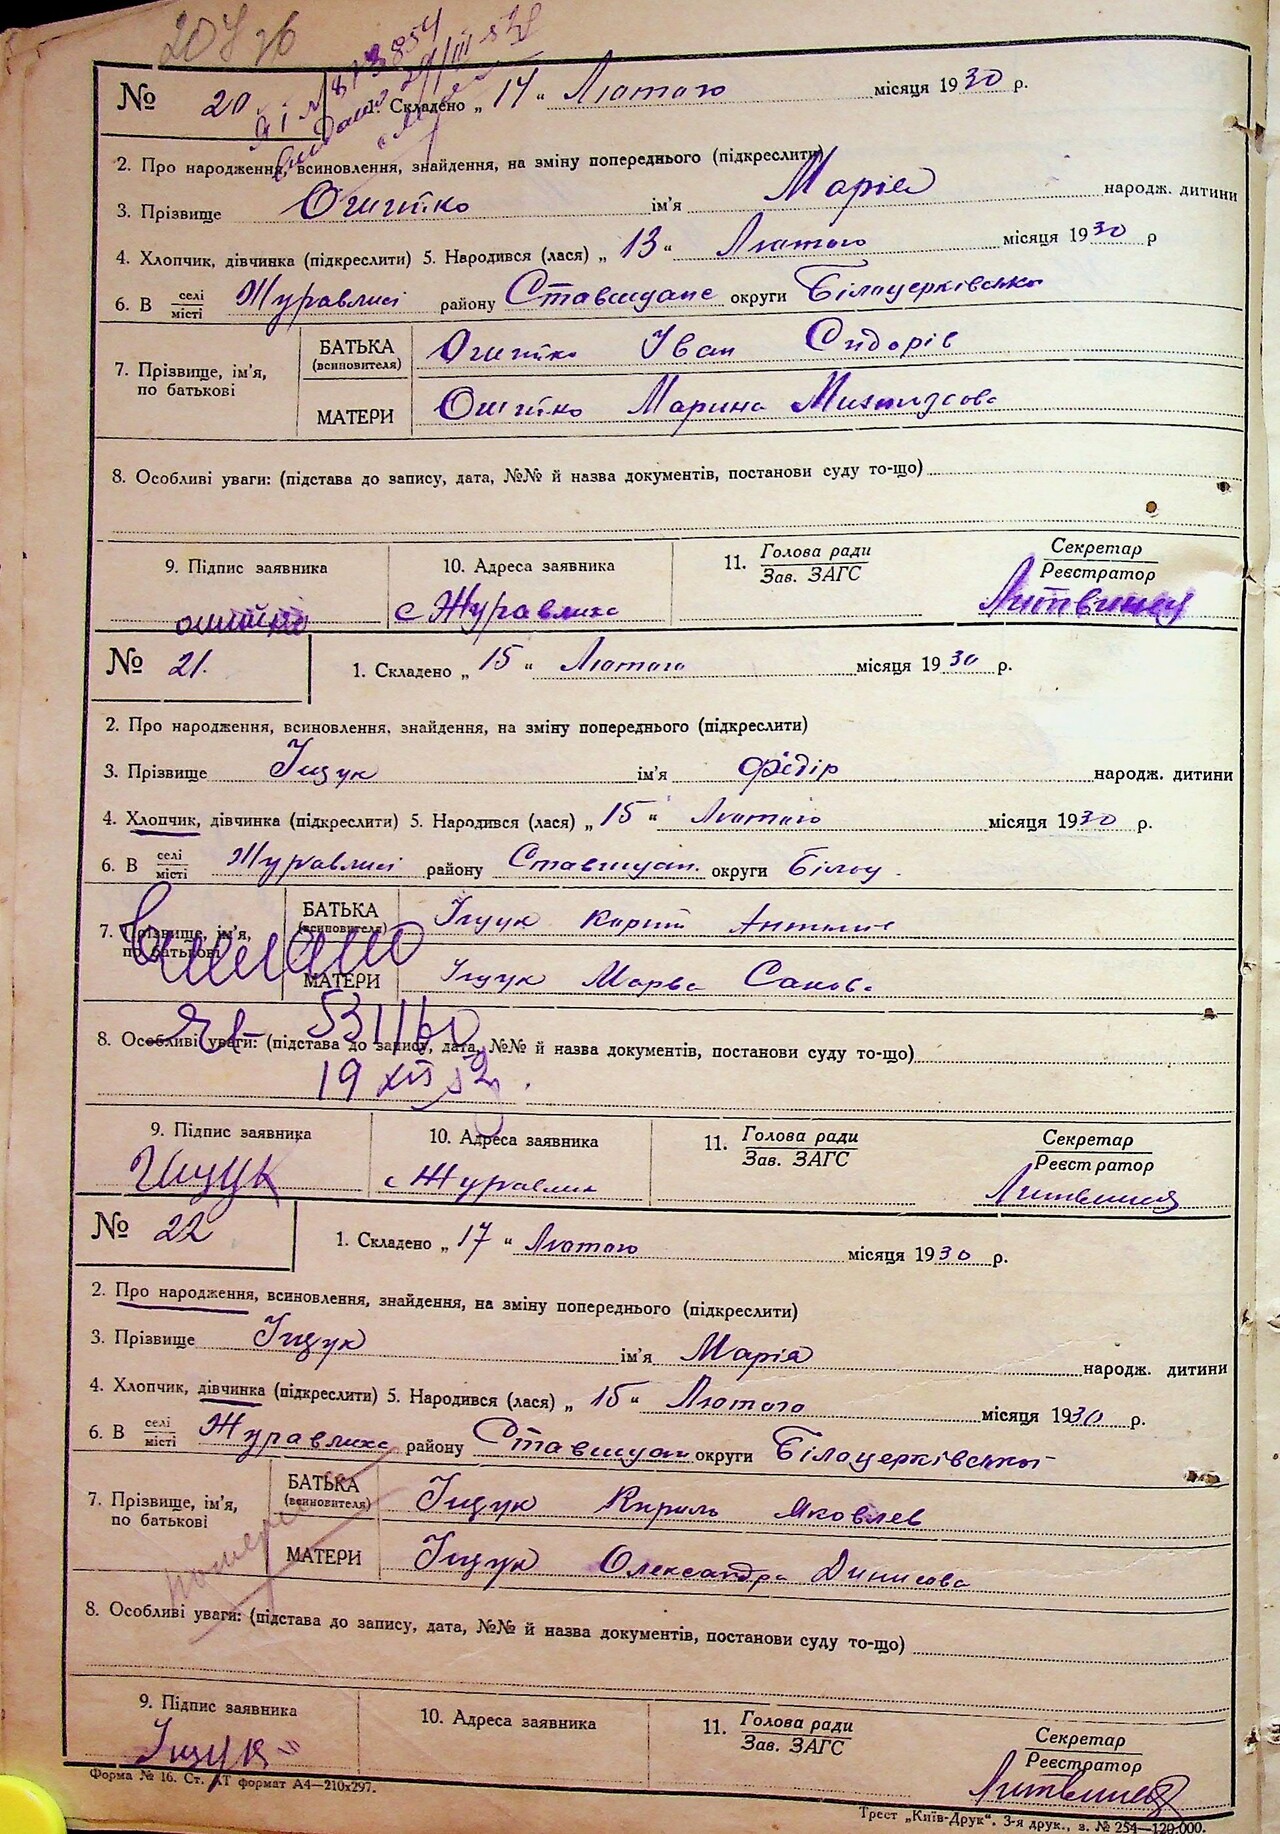 № 20
1. Складено „ 14 “ Лютого місяця 1930 р.
2. Про народження, всиновлення, знайдення, на зміну попереднього (підкреслити)
3. Прізвище ім'я Марія народж. дитини
4. Хлопчик, дівчинка (підкреслити) 5. Народився (лася) „ 13 “ Лютого місяця 1930 р
6. В селі/місті Журавлисі району округи Білоцерківсько
7. Прізвище, ім'я, по батькові
БАТЬКА (всиновителя) Іван Сидорів
МАТЕРИ Марина
8. Особливі уваги: (підстава до запису, дата, №№ й назва документів, постанови суду то-що)
9. Підпис заявника 10. Адреса заявника 11. Голова ради/Зав. ЗАГС Секретар/Реєстратор
с Журавлиха
№ 21.
1. Складено „ 15 “ Лютого місяця 1930 р.
2. Про народження, всиновлення, знайдення, на зміну попереднього (підкреслити)
3. Прізвище Іщук ім'я Федір народж. дитини
4. Хлопчик, дівчинка (підкреслити) 5. Народився (лася) „ 15 “ Лютого місяця 1930 р.
6. В селі/місті Журавлисі району Ставищан. округи Білоц.
7. Прізвище, ім'я, по батькові
БАТЬКА (всиновителя) Іщук
МАТЕРИ Іщук
8. Особливі уваги: (підстава до запису, дата, №№ й назва документів, постанови суду то-що)
19 XII 52
9. Підпис заявника 10. Адреса заявника 11. Голова ради/Зав. ЗАГС Секретар/Реєстратор
Іщук с Журавлих
№ 22
1. Складено „ 17 “ Лютого місяця 1930 р.
2. Про народження, всиновлення, знайдення, на зміну попереднього (підкреслити)
3. Прізвище Іщук ім'я Марія народж. дитини
4. Хлопчик, дівчинка (підкреслити) 5. Народився (лася) „ 15 “ Лютого місяця 1930 р.
6. В селі/місті Журавлиха району Ставищан округи Білоцерківської
7. Прізвище, ім'я, по батькові
БАТЬКА (всиновителя) Іщук Кирило Яковлев
МАТЕРИ Іщук Олександра Динисова
8. Особливі уваги: (підстава до запису, дата, №№ й назва документів, постанови суду то-що)
9. Підпис заявника 10. Адреса заявника 11. Голова ради/Зав. ЗАГС Секретар/Реєстратор
Іщук
Форма № 16. Ст. АТ формат А4—210х297.
Трест „Київ-Друк“. 3-я друк., з. № 254—120.000.